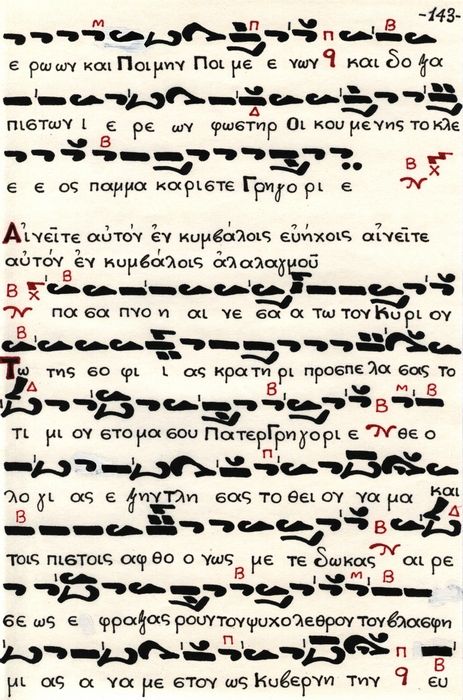 -143-
ε ρω ων και Ποιμην Ποι με ε νων και δο ξα
πιστων ι ε ρε ων φωστηρ Οι κου με νης το κλε
ε ε ος παμμα καριστε Γρηγο ρι ε
Αἰνεῖτε αὐτόν ἐν κυμβάλοις εὐήχοις αἰνεῖτε
αὐτόν ἐν κυμβάλοις ἀλαλαγμοῦ
πα σα πνο η αι νε σα α τω τον Κυρι ον
Τω της σο φι ι ας κρατη ρι προσπε λα σας το
τι μι ον στομα σου Πατερ Γρηγορι ε θε ο
λο γι ας ε ξην τλη σας το θει ον να μα και
τοις πιστοις αφθο ο νως με τε δωκας αι ρε
σε ως ε φραξας ρουν του ψυχολεθρον του βλασφη
μι ας α να με στον ως Κυβερνη την ευ